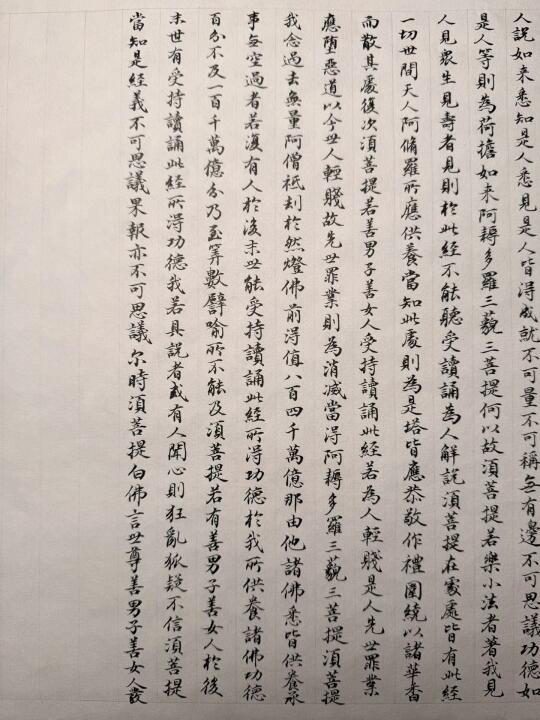 人說如来悉知是人悉見是人皆得成就不可量不可稱無有邊不可思議功德如
是人等則為荷擔如来阿耨多羅三藐三菩提何以故須菩提若樂小法者著我見
人見衆生見壽者見則於此經不能聽受讀誦為人解説須菩提在處處皆有此經
一切世間天人阿脩羅所應供養當知此處則為是塔皆應恭敬作禮圍繞以諸華香
而散其處復次須菩提若善男子善女人受持讀誦此經若為人輕賤是人先世罪業
應墮惡道以今世人輕賤故先世罪業則為消滅當得阿耨多羅三藐三菩提須菩提
我念過去無量阿僧祇刦於然燈佛前得值八百四千萬億那由他諸佛悉皆供養承
事無空過者若復有人於後末世能受持讀誦此經所得功德於我所供養諸佛功德
百分不及一百千萬億分乃至筭數譬喻所不能及須菩提若有善男子善女人於後
末世有受持讀誦此經所得功德我若具說者或有人聞心則狂亂狐疑不信須菩提
當知是經義不可思議果報亦不可思議尔時須菩提白佛言世尊善男子善女人發